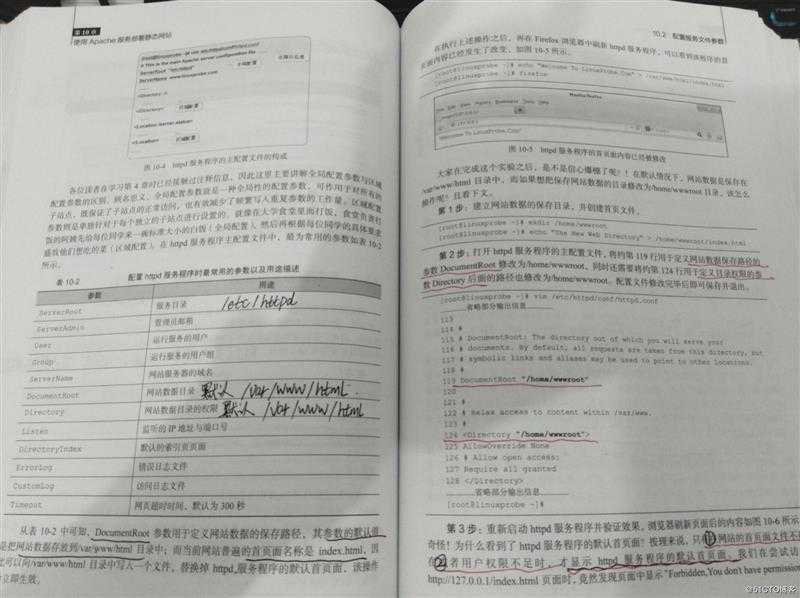 第10章
使用 Apache 服务部署静态网站
# This is the main Apache server configuration file
ServerName www.linuxprobe.com
<Location /server-status>
图 10-4 httpd 服务程序的主配置文件的构成
各位读者在学习第 4 章时已经接触过注释信息，因此这里主要讲解全局配置参数与区域
配置参数的区别。顾名思义，全局配置参数就是一种全局性的配置参数，可作用于对所有的
子站点，既保证了子站点的正常访问，也有效减少了频繁写入重复参数的工作量。区域配置
参数则是单独针对于每个独立的子站点进行设置的。就像在大学食堂里面打饭，食堂负责打
饭的阿姨先给每位同学来一碗标准大小的白饭（全局配置），然后再根据每位同学的具体要求
盛放他们想吃的菜（区域配置）。在 httpd 服务程序主配置文件中，最为常用的参数如表 10-2
所示。
表 10-2 配置 httpd 服务程序时最常用的参数以及用途描述
参数 用途
ServerRoot 服务目录 /etc/httpd
ServerAdmin 管理员邮箱
User 运行服务的用户
Group 运行服务的用户组
ServerName 网站服务器的域名
DocumentRoot 网站数据目录 默认 /var/www/html.
Directory 网站数据目录的权限 默认 /var/www/html
Listen 监听的 IP 地址与端口号
DirectoryIndex 默认的索引页页面
ErrorLog 错误日志文件
CustomLog 访问日志文件
Timeout 网页超时时间，默认为 300 秒
从表 10-2 中可知，DocumentRoot 参数用于定义网站数据的保存路径，其参数的默认值
是把网站数据存放到/var/www/html 目录中；而当前网站普遍的首页面名称是 index.html，因
此可以向/var/www/html 目录中写入一个文件，替换掉 httpd 服务程序的默认首页面，该操作
立即生效。
10.2 配置服务文件参数
在执行上述操作之后，再在 Firefox 浏览器中刷新 httpd 服务程序，可以看到该程序的首
页面内容已经发生了改变，如图 10-5 所示。
[root@linuxprobe ~]# echo "Welcome To LinuxProbe.Com" > /var/www/html/index.html
[root@linuxprobe ~]# firefox
Mozilla Firefox
Welcome To LinuxProbe.Com
图 10-5 httpd 服务程序的首页面内容已经被修改
大家在完成这个实验之后，是不是信心爆棚了呢！！在默认情况下，网站数据是保存在
/var/www/html 目录中，而如果想把保存网站数据的目录修改为/home/wwwroot 目录，该怎么
操作呢？且看下文。
第 1 步：建立网站数据的保存目录，并创建首页文件。
[root@linuxprobe ~]# mkdir /home/wwwroot
[root@linuxprobe ~]# echo "The New Web Directory" > /home/wwwroot/index.html
第 2 步：打开 httpd 服务程序的主配置文件，将约第 119 行用于定义网站数据保存路径的
参数 DocumentRoot 修改为/home/wwwroot，同时还需要将约第 124 行用于定义目录权限的参
数 Directory 后面的路径也修改为/home/wwwroot。配置文件修改完毕后即可保存并退出。
[root@linuxprobe ~]# vim /etc/httpd/conf/httpd.conf
省略部分输出信息
113
114 #
115 # DocumentRoot: The directory out of which you will serve your
116 # documents. By default, all requests are taken from this directory, but
117 # symbolic links and aliases may be used to point to other locations.
118 #
119 DocumentRoot "/home/wwwroot"
120
121 #
122 # Relax access to content within /var/www.
123 #
124 <Directory "/home/wwwroot">
125 AllowOverride None
126 # Allow open access:
127 Require all granted
128 </Directory>
省略部分输出信息
[root@linuxprobe ~]#
第 3 步：重新启动 httpd 服务程序并验证效果，浏览器刷新页面后的内容如图 10-6 所
奇怪！为什么看到了 httpd 服务程序的默认首页面？按理来说，只 网站的首页面文件不
者用户权限不足时，才显示 httpd 服务程序的默认首页面。我们在尝试访
http://127.0.0.1/index.html 页面时，竟然发现页面中显示 "Forbidden,You don't have permission
@51CTO博客